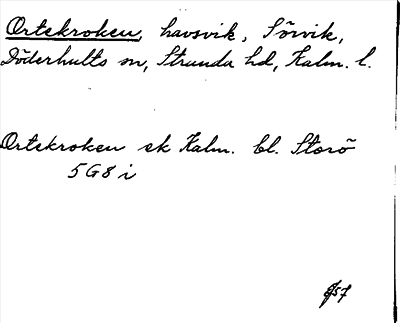 Ortekroken, havsvik, Sörvik,
Döderhults sn, Stranda hd, Kalm. l.
Ortekroken ek Kalm. bl. Storö
5G8i